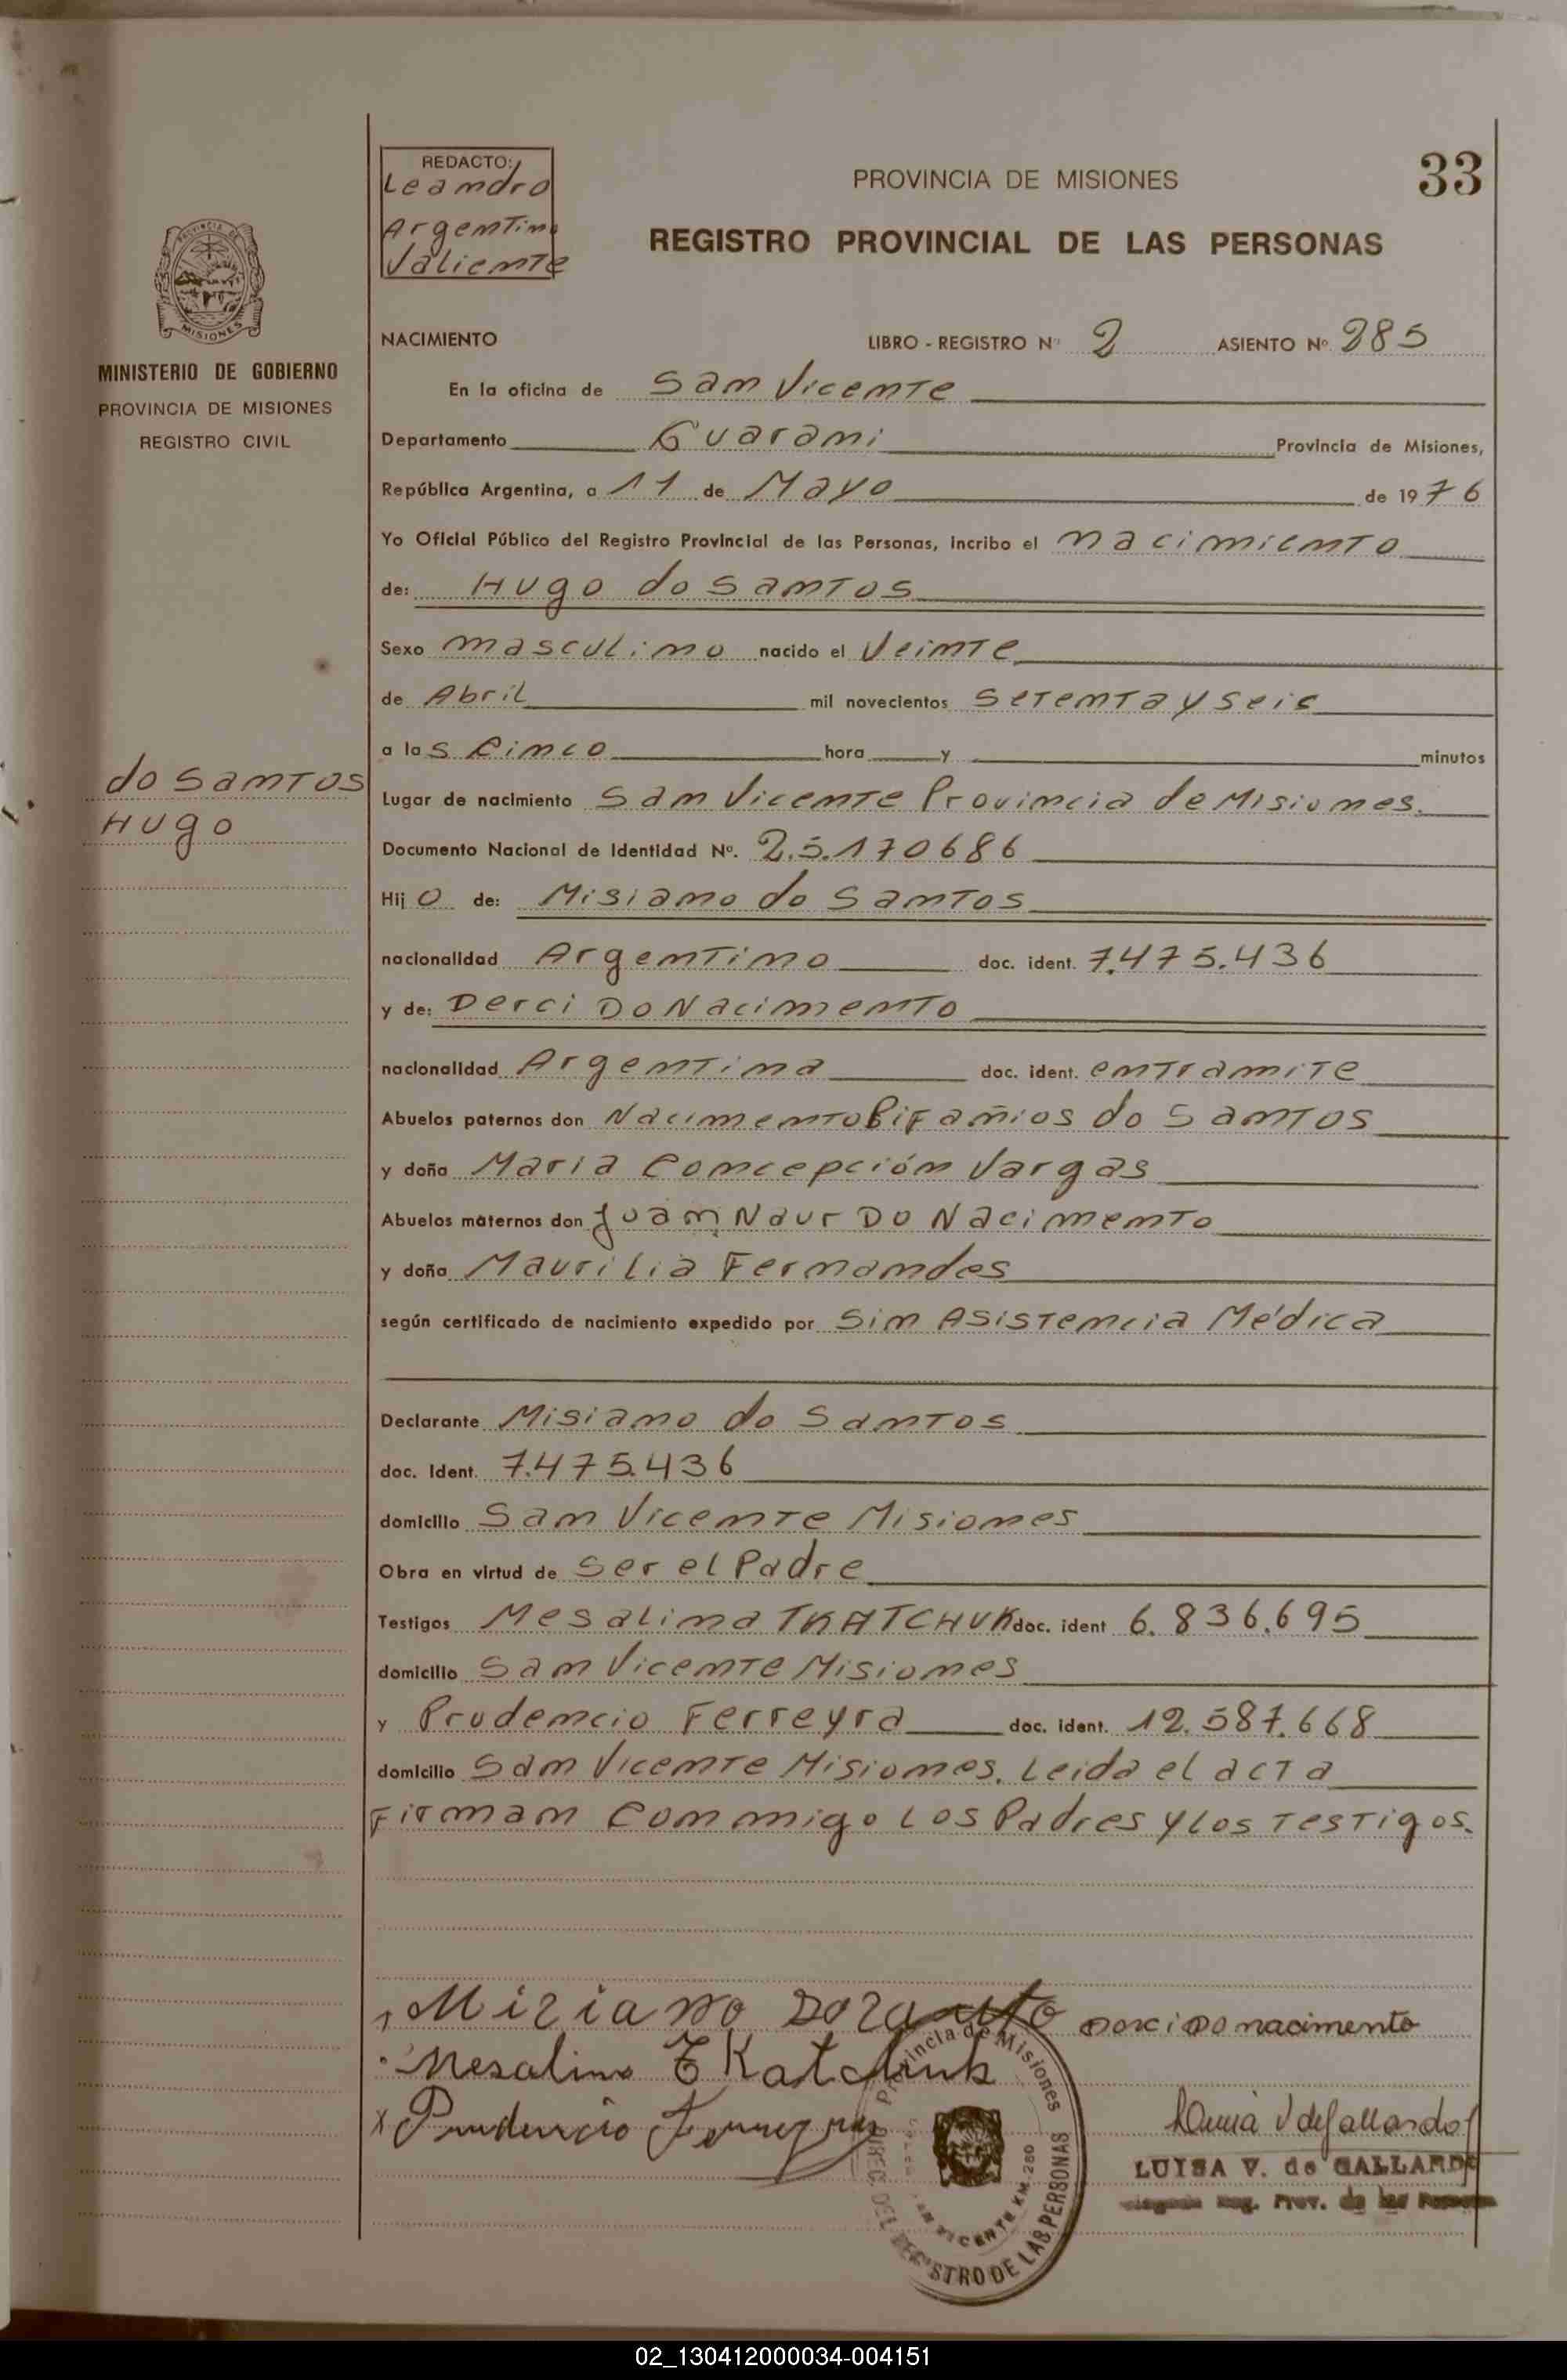 REDACTO:
Leandro
Argentino
Valiente
PROVINCIA DE MISIONES
33
REGISTRO PROVINCIAL DE LAS PERSONAS
MISIONES
MINISTERIO DE GOBIERNO
PROVINCIA DE MISIONES
REGISTRO CIVIL
NACIMIENTO LIBRO - REGISTRO Nº 2 ASIENTO Nº 285
En la oficina de San Vicente
Departamento Guarani Provincia de Misiones,
República Argentina, a 11 de Mayo de 1976
Yo Oficial Público del Registro Provincial de las Personas, incribo el nacimiento
de: Hugo do Santos
Sexo masculino nacido el Veinte
de Abril mil novecientos setenta y seis
a las Cinco hora y minutos
do Santos
Hugo
Lugar de nacimiento San Vicente Provincia de Misiones.
Documento Nacional de Identidad Nº. 25.170686
Hijo de: Misiano do Santos
nacionalidad Argentino doc. ident. 7.475.436
y de: Derci Do Nacimento
nacionalidad Argentina doc. ident. en tramite
Abuelos paternos don Nacimento do Santos
y doña Maria Concepción Vargas
Abuelos maternos don Juan Naur Do Nacimento
y doña Maurilia Fernandes
según certificado de nacimiento expedido por Sin Asistencia Médica
Declarante Misiano do Santos
doc. Ident. 7.475.436
domicilio San Vicente Misiones
Obra en virtud de Ser el Padre
Testigos Mesalina TKATCHUK doc. ident 6.836.695
domicilio San Vicente Misiones
y Prudencio Ferreyra doc. ident. 12.587.668
domicilio San Vicente Misiones. Leida el acta
Firman Conmigo Los Padres y los Testigos.
Miziano Dozanto Dorci Do nacimento
Mesalina TKatchuk
x Prudencio Ferreyra
Provincia de Misiones
DIREC. DEL REGISTRO DE LAS PERSONAS
SAN VICENTE KM. 280
LUISA V. de GALLARDO
Reg. Prov. de las Personas
02_130412000034-004151